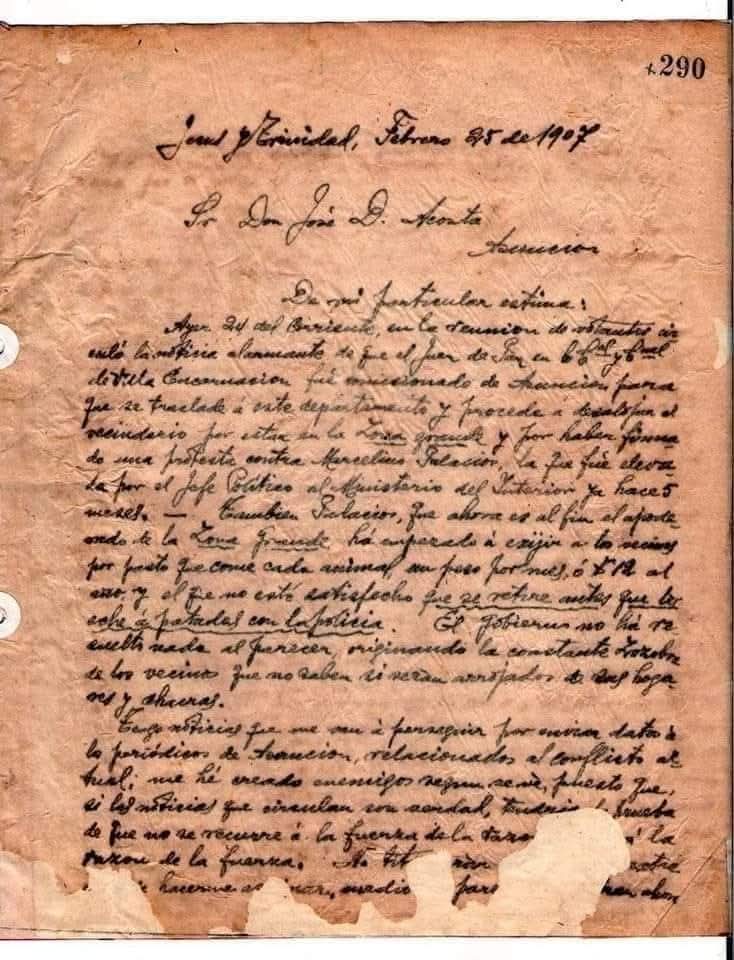 290
Jesus y Trinidad, Febrero 25 de 1907
Sr Don José D. Acosta
Asuncion
De mi particular estima:
Ayer 24 del corriente, en la reunion de votantes cir
culó la noticia alarmante de que el Juez de Paz en
de Villa Encarnacion fué comisionado de Asuncion para
que se traslade á este departamento y proceda a desalojar el
vecindario por estar en la Zona grande y por haber firma
do una protesta contra Marcelino Palacios, la que fué eleva
da por el Jefe Político al Ministerio del Interior ya hace 5
meses. — Tambien Palacios, que ahora es al fin el apode
rado de la Zona Grande há empezado á exijir a los vecinos
por pasto que come cada animal, un peso por mes, ó $ 12 al
año, y el que no esté satisfecho que se retire antes que los
eche á patadas con la policia. El Gobierno no há re
suelto nada al parecer, originando la constante zozobra
de los vecinos que no saben si serán arrojados de sus hoga
res y chacras.
Tengo noticias que me van á perseguir por enviar datos á
los periódicos de Asuncion, relacionados al conflicto ac
tual; me hé creado enemigos segun se vé, puesto que,
si las noticias que circulan son verdad, tendria la prueba
de que no se recurre á la fuerza de la razon á la
razon de la fuerza. No
hacerme asesinar, medio para